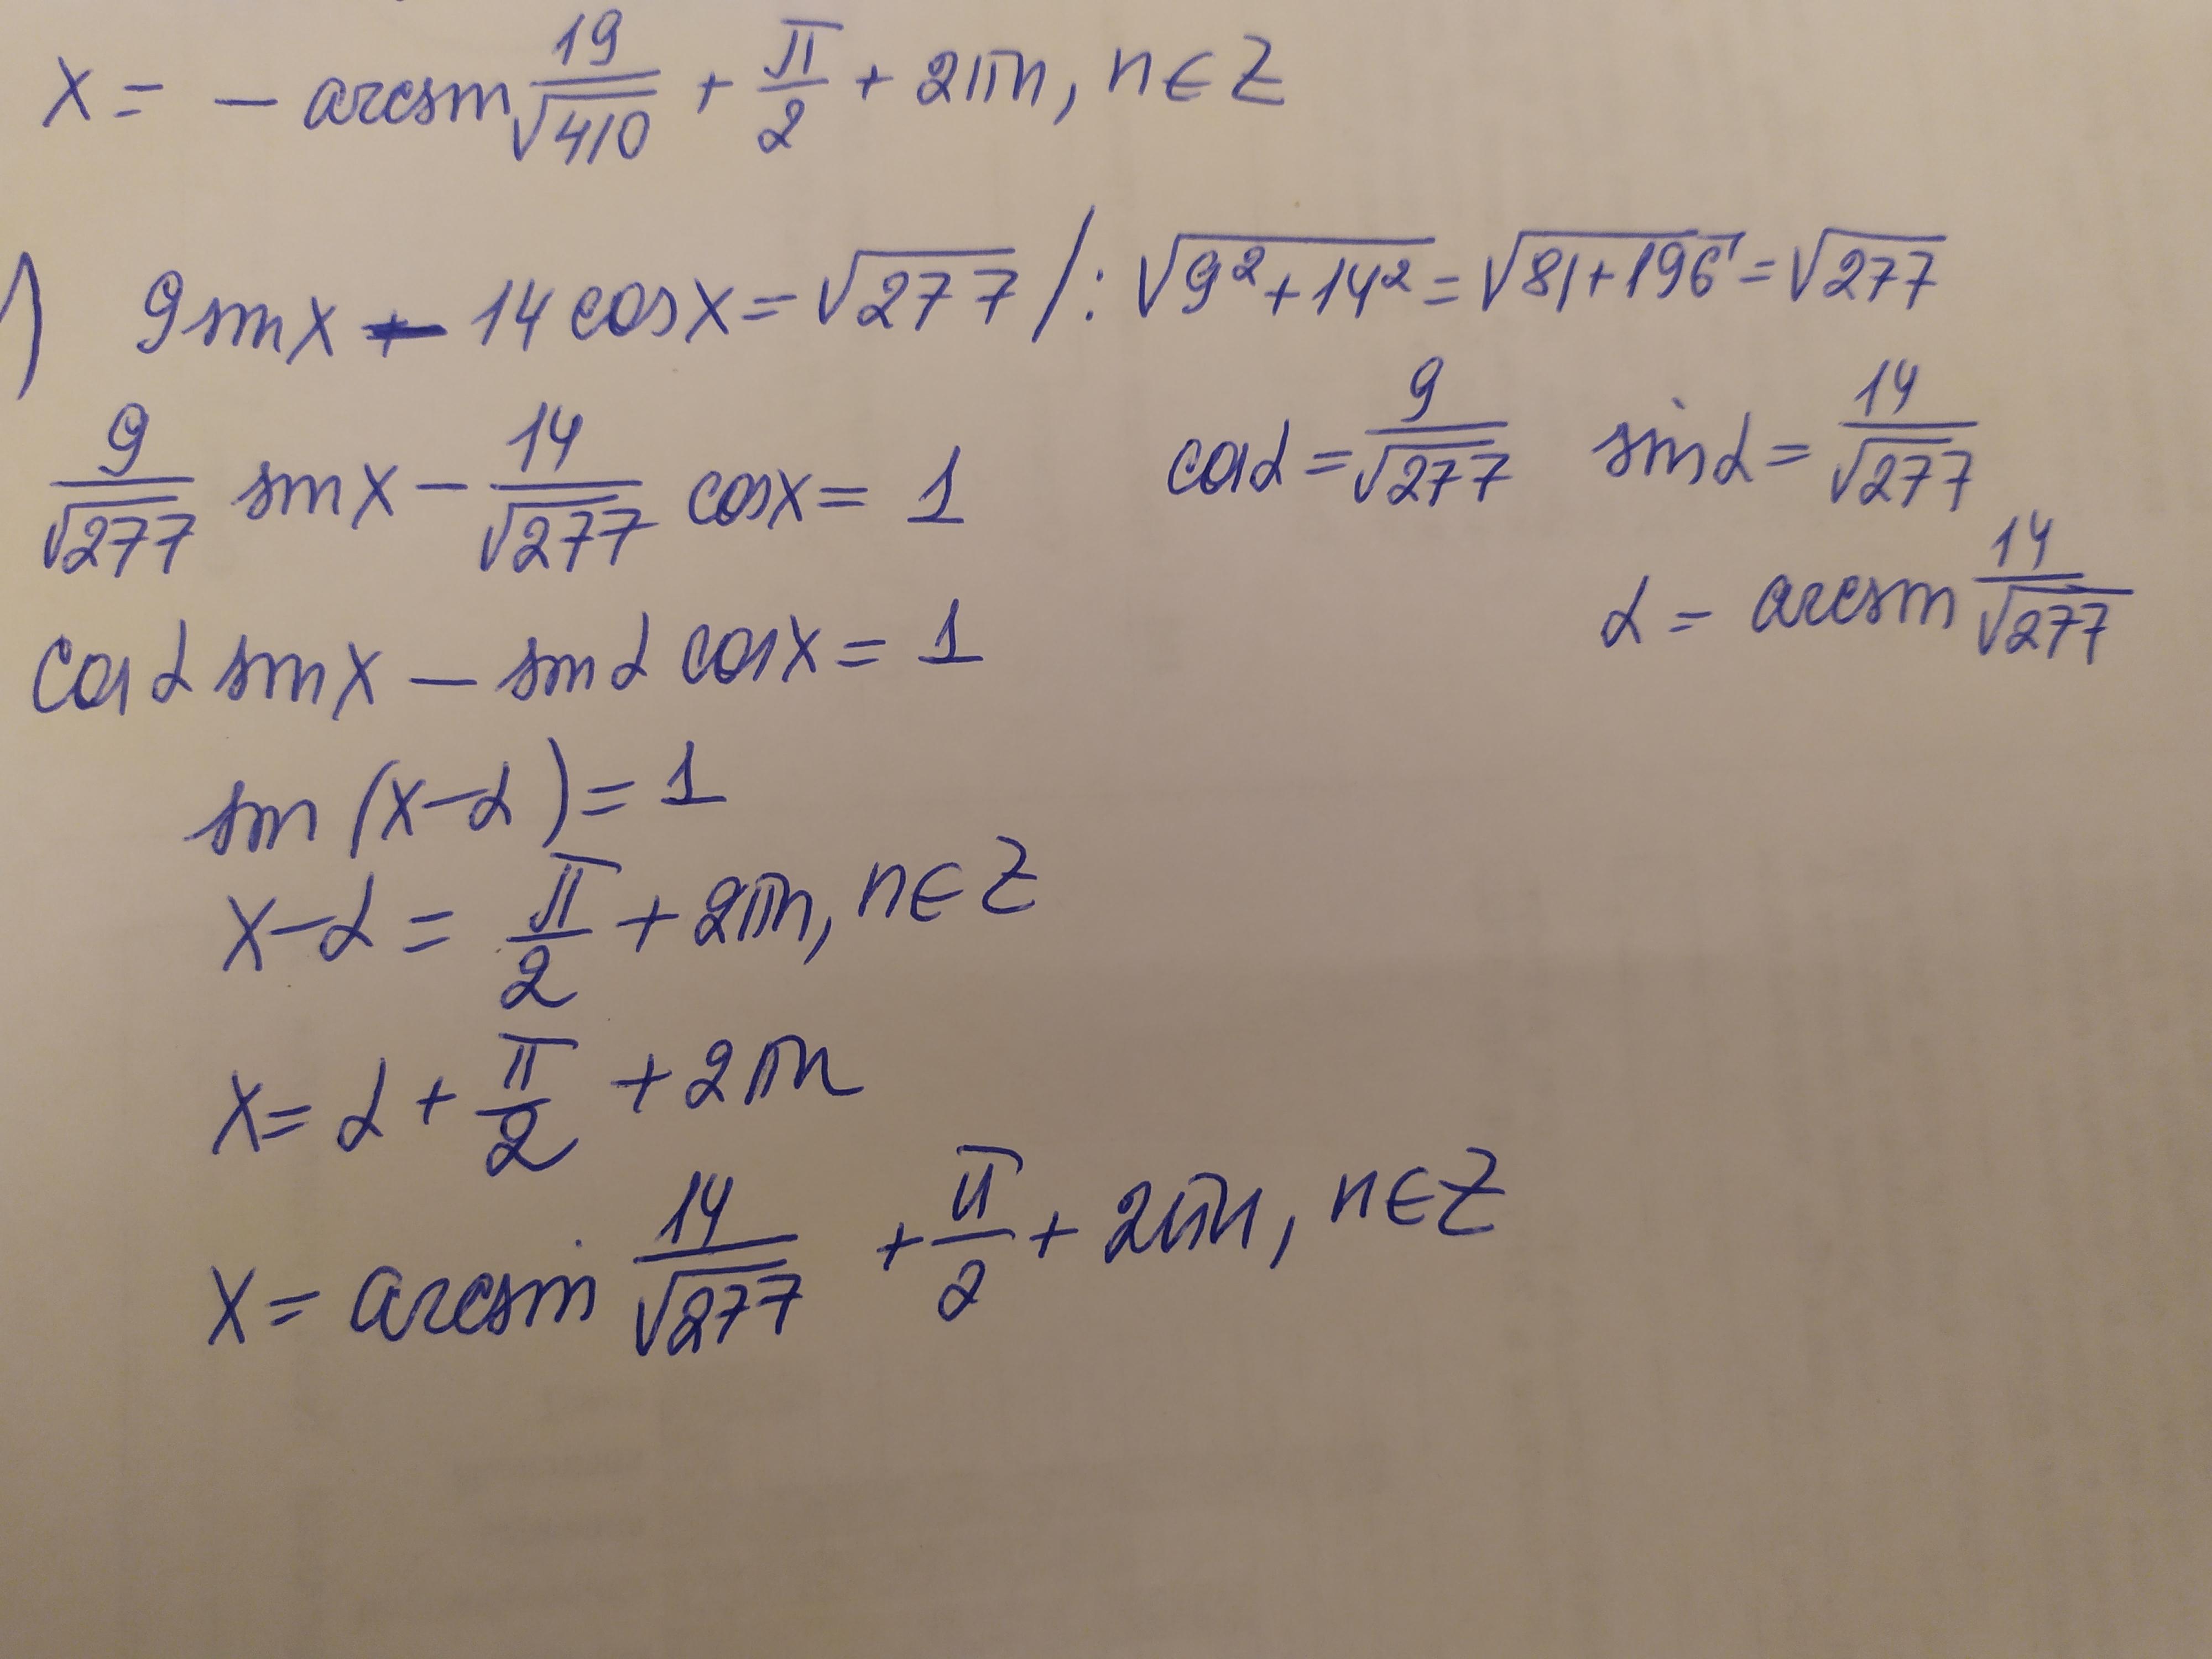 x = - arcsin 19/√410 + π/2 + 2πn, n∈Z
) 9 sin x - 14 cos x = √277 /: √9²+14² = √81+196 = √277
9/√277 sin x - 14/√277 cos x = 1 cos α = 9/√277 sin α = 14/√277
α = arcsin 14/√277
cos α sin x - sin α cos x = 1
sin (x-α) = 1
x-α = π/2 + 2πn, n∈Z
x = α + π/2 + 2πn
x = arcsin 14/√277 + π/2 + 2πn, n∈Z